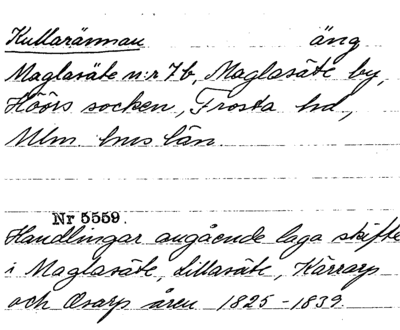 Kullarännan äng
Maglasäte n:r 7b, Maglasäte by,
Höörs socken, Frosta hd,
Mlm. hus län.
Nr 5559.
Handlingar angående laga skifte
i Maglasäte, Lillasäte, Kärrarp
och Osarp åren 1825-1839